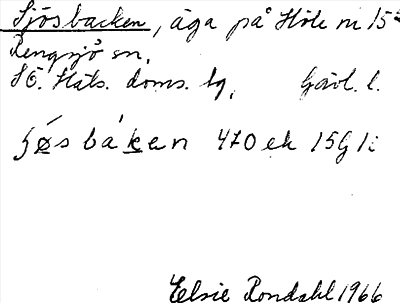 Sjösbacken, äga på Höle nr 15²
Rengsjö sn,
SÖ. Häls. doms. tg, Gävl. l.
ʃǿs bàken 470 ek 15G 1i
Elsie Rondahl 1966